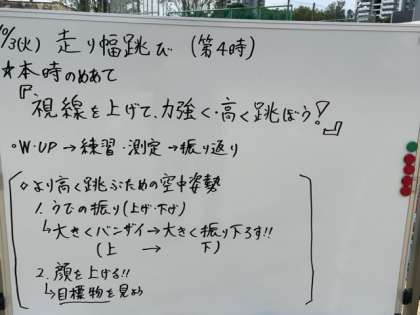 10/3(火) 走り幅跳び (第4時)
☆本時のめあて
『視線を上げて、力強く・高く跳ぼう!』
○W-UP → 練習・測定 → 振り返り
◇より高く跳ぶための空中姿勢
1. うでの振り(上げ・下げ)
↳大きくバンザイ→大きく振り下ろす!!
(上 → 下)
2. 顔を上げる!!
↳目標物を見よう